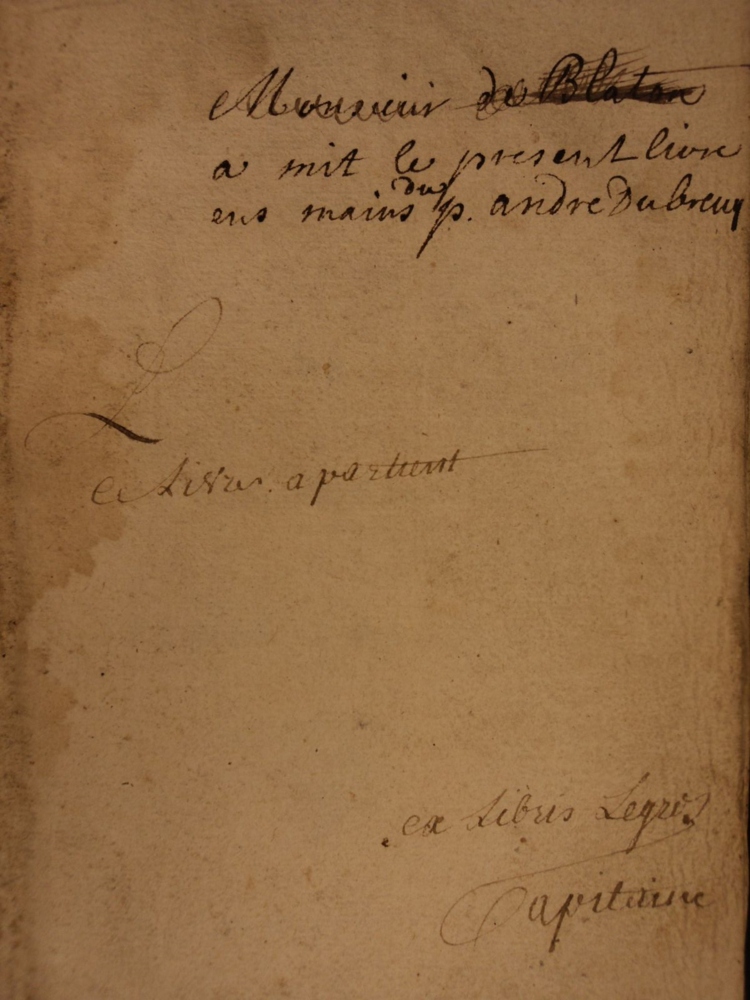 Monsieur de Blaton
a mit le present livre
ens mains du p. andre Dubreuq
L
Ce Livre apartient
ex Libris Legros
Capitaine